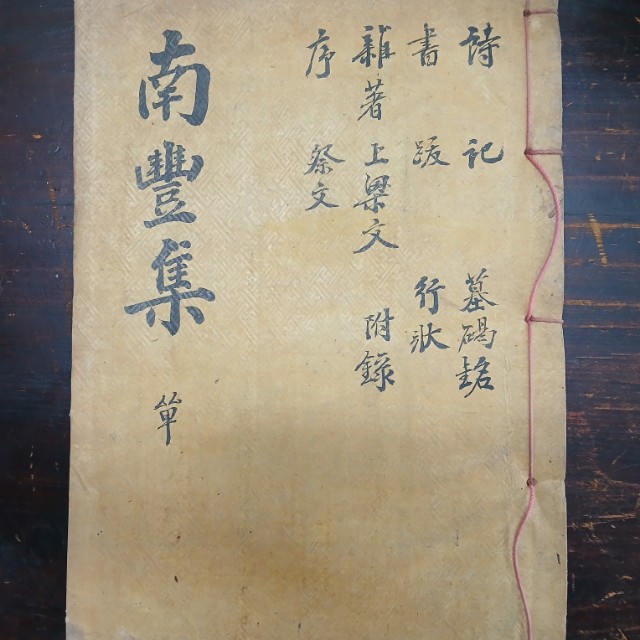 詩 記 墓碣銘
書 跋 行狀
雜著 上梁文 附錄
序 祭文
南豐集 單